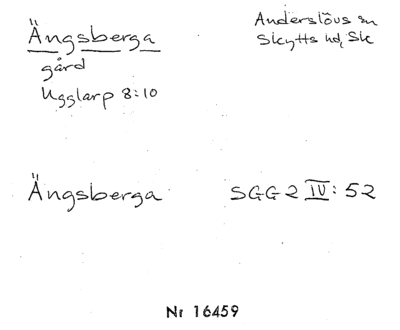 Ängsberga
Anderslövs sn
Skytts hd, Sk
gård
Ugglarp 8:10
Ängsberga SGG2 IV: 52
Nr 16459